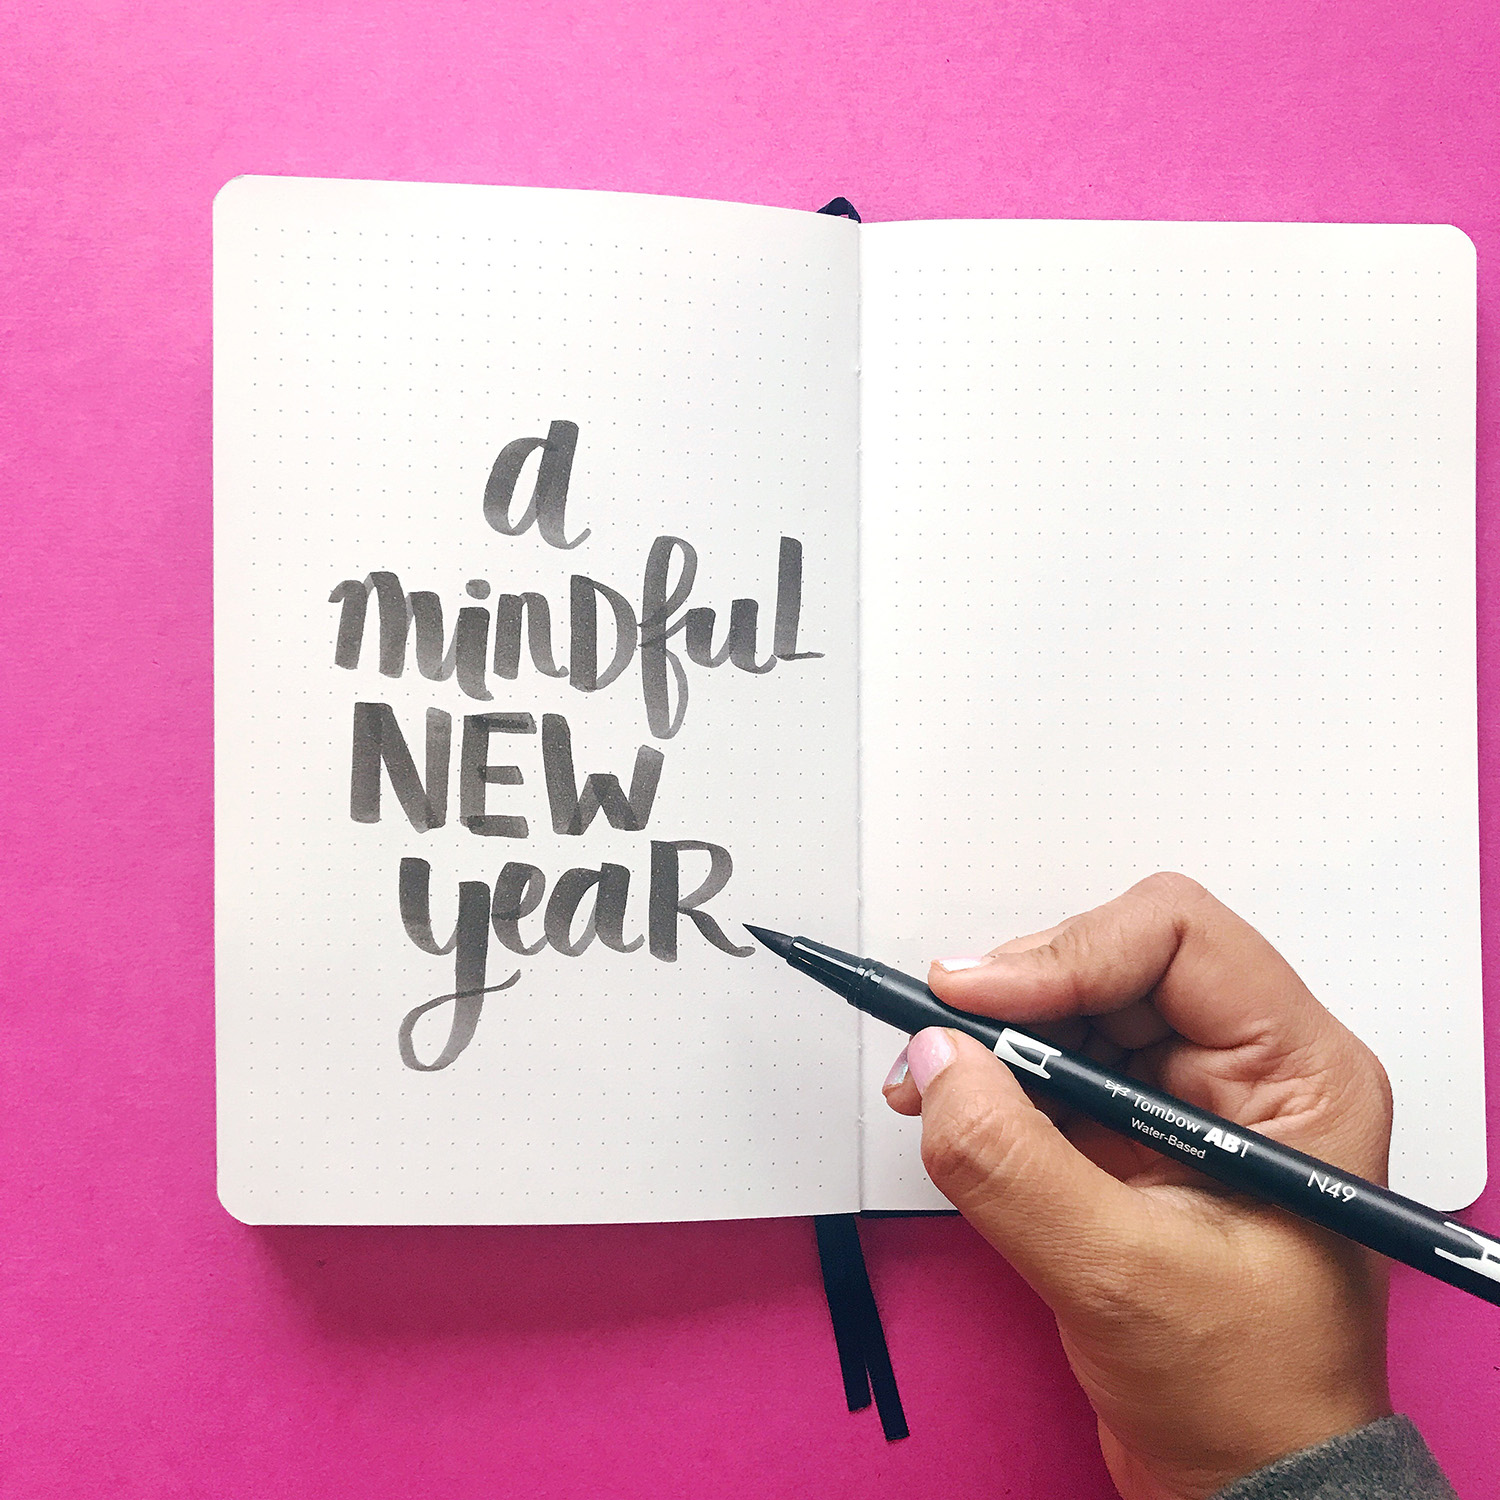 a
minDful
NEW
yeaR
Tombow ABT
Water-Based
N49